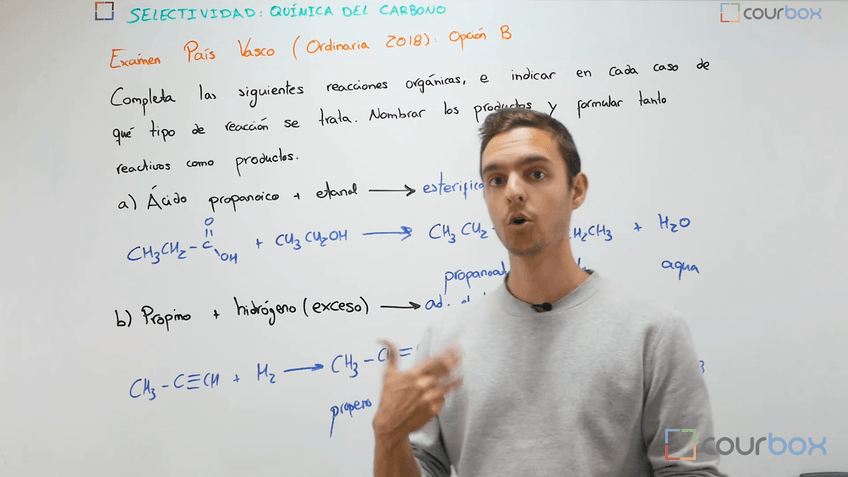 SELECTIVIDAD: QUÍMICA DEL CARBONO
courbox
Examen País Vasco (Ordinaria 2018): Opción B
Completa las siguientes reacciones orgánicas, e indicar en cada caso de
qué tipo de reacción se trata. Nombrar los productos y formular tanto
reactivos como productos.
a) Ácido propanoico + etanol → esterifica
O
CH3CH2 - C OH + CH3CH2OH → CH3CH2 - H2CH3 + H2O
propanoat agua
b) Propino + hidrógeno (exceso) → ad.
CH3 - C≡CH + H2 → CH3 - CH = 3
propeno
courbox